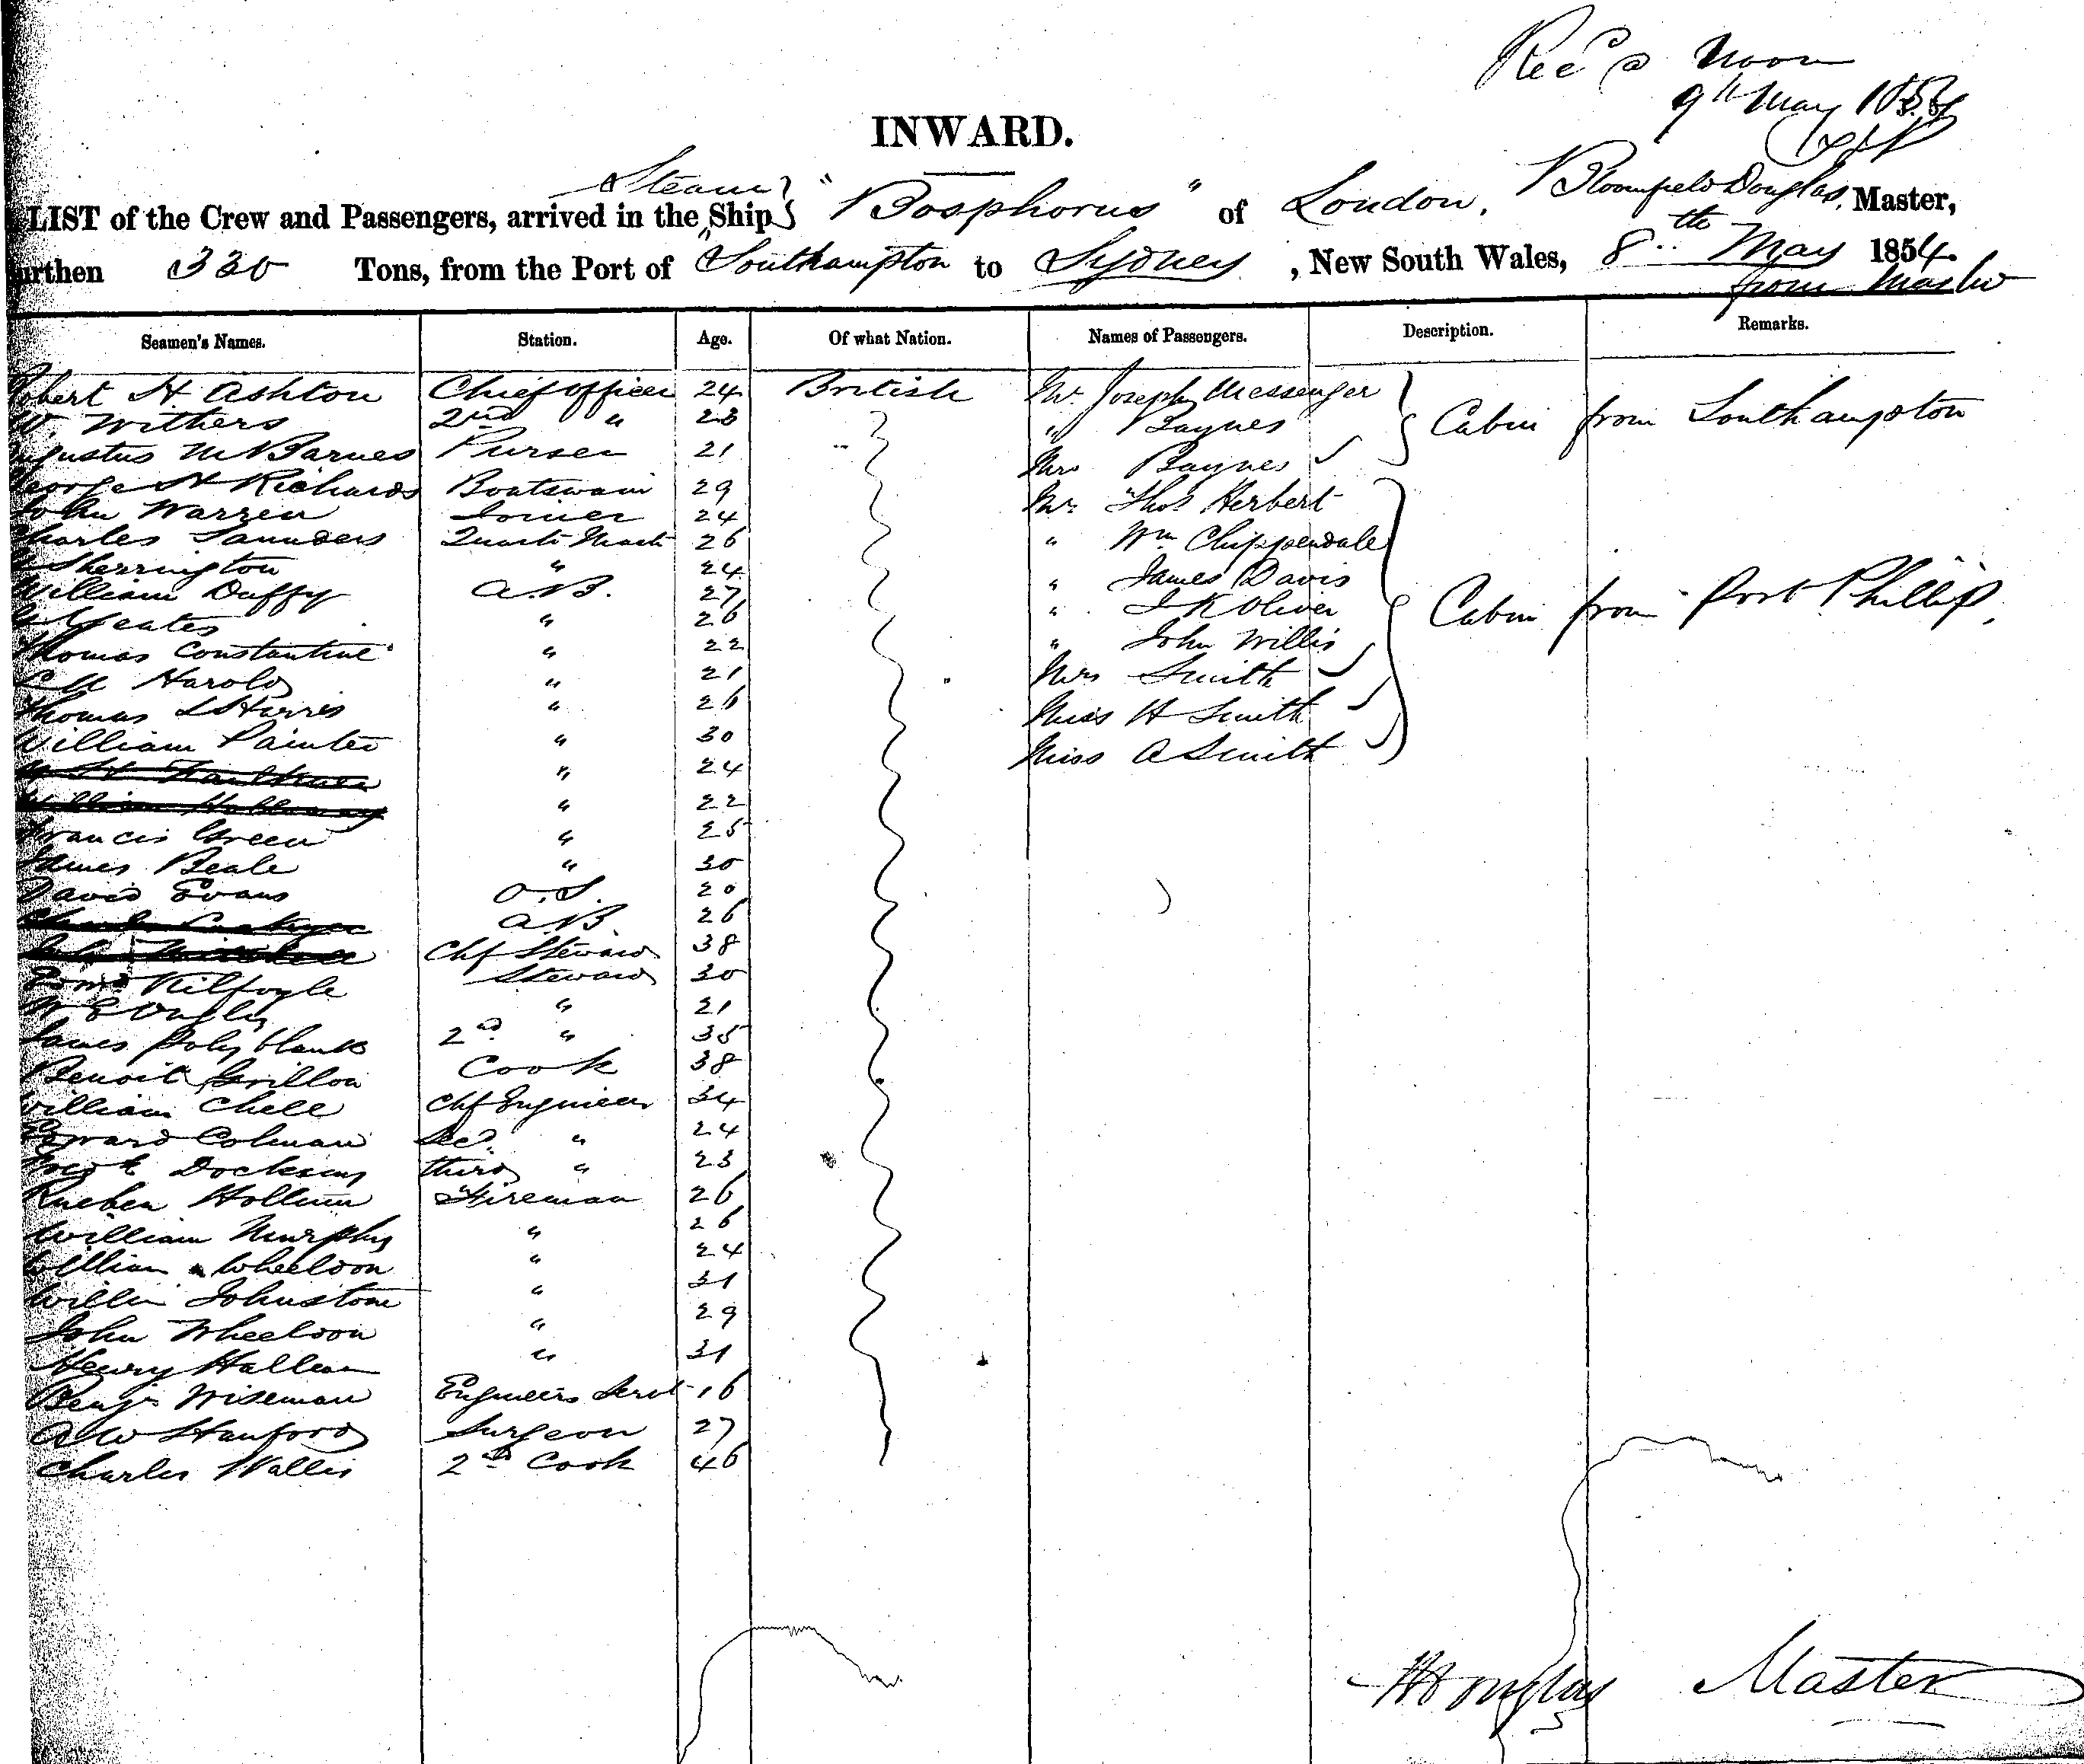 Recd @ Noon
9th May 1854
INWARD.
Steam
LIST of the Crew and Passengers, arrived in the Ship "Bosphorus" of London, Bloomfield Douglas, Master,
urthen 330 Tons, from the Port of Southampton to Sydney, New South Wales, 8th May 1854.
from Master
Seamen's Names. Station. Age. Of what Nation. Names of Passengers. Description. Remarks.
Robert H Ashton Chief Officer 24 British Mr Joseph Messenger
W. Withers 2nd " 23 " Baynes Cabin from Southampton
Augustus M Barnes Purser 21 Mrs Baynes
George H Richards Boatswain 29 Mr. Thos Herbert
John Warren Joiner 24
Charles Saunders Quartr Mastr 26 " Wm Chippendale
Sherrington " 24 " James Davis
William Duffy A.B. 27 " J K Oliver Cabin from Port Phillip,
Yeates " 26 " John Willis
Thomas Constantine " 22
Harold " 21 Mrs Smith
Thomas Harris " 26 Miss H Smith
William Painter " 30 Miss A Smith
" 24
William Holloway " 22
Francis Green " 25
James Beale " 30
David Evans O.S. 20
Charles A.B. 26
John Chf Steward 38
Edmd Kilfoyle Steward 30
" 21
James Polyblank 2nd " 35
Benoit Grillon Cook 38
William Chell Chf Engineer 34
Edward Colman Secd. " 24
Dockung third " 23
Rueben Hollum Fireman 26
William Murphy " 26
William Wheeldon " 24
Willm Johnstone " 31
John Wheeldon " 29
Henry Hallam " 31
Benjn Wiseman Engineers Servt 16
A W Stanford Surgeon 27
Charles Wallis 2nd Cook 46
Douglas Master